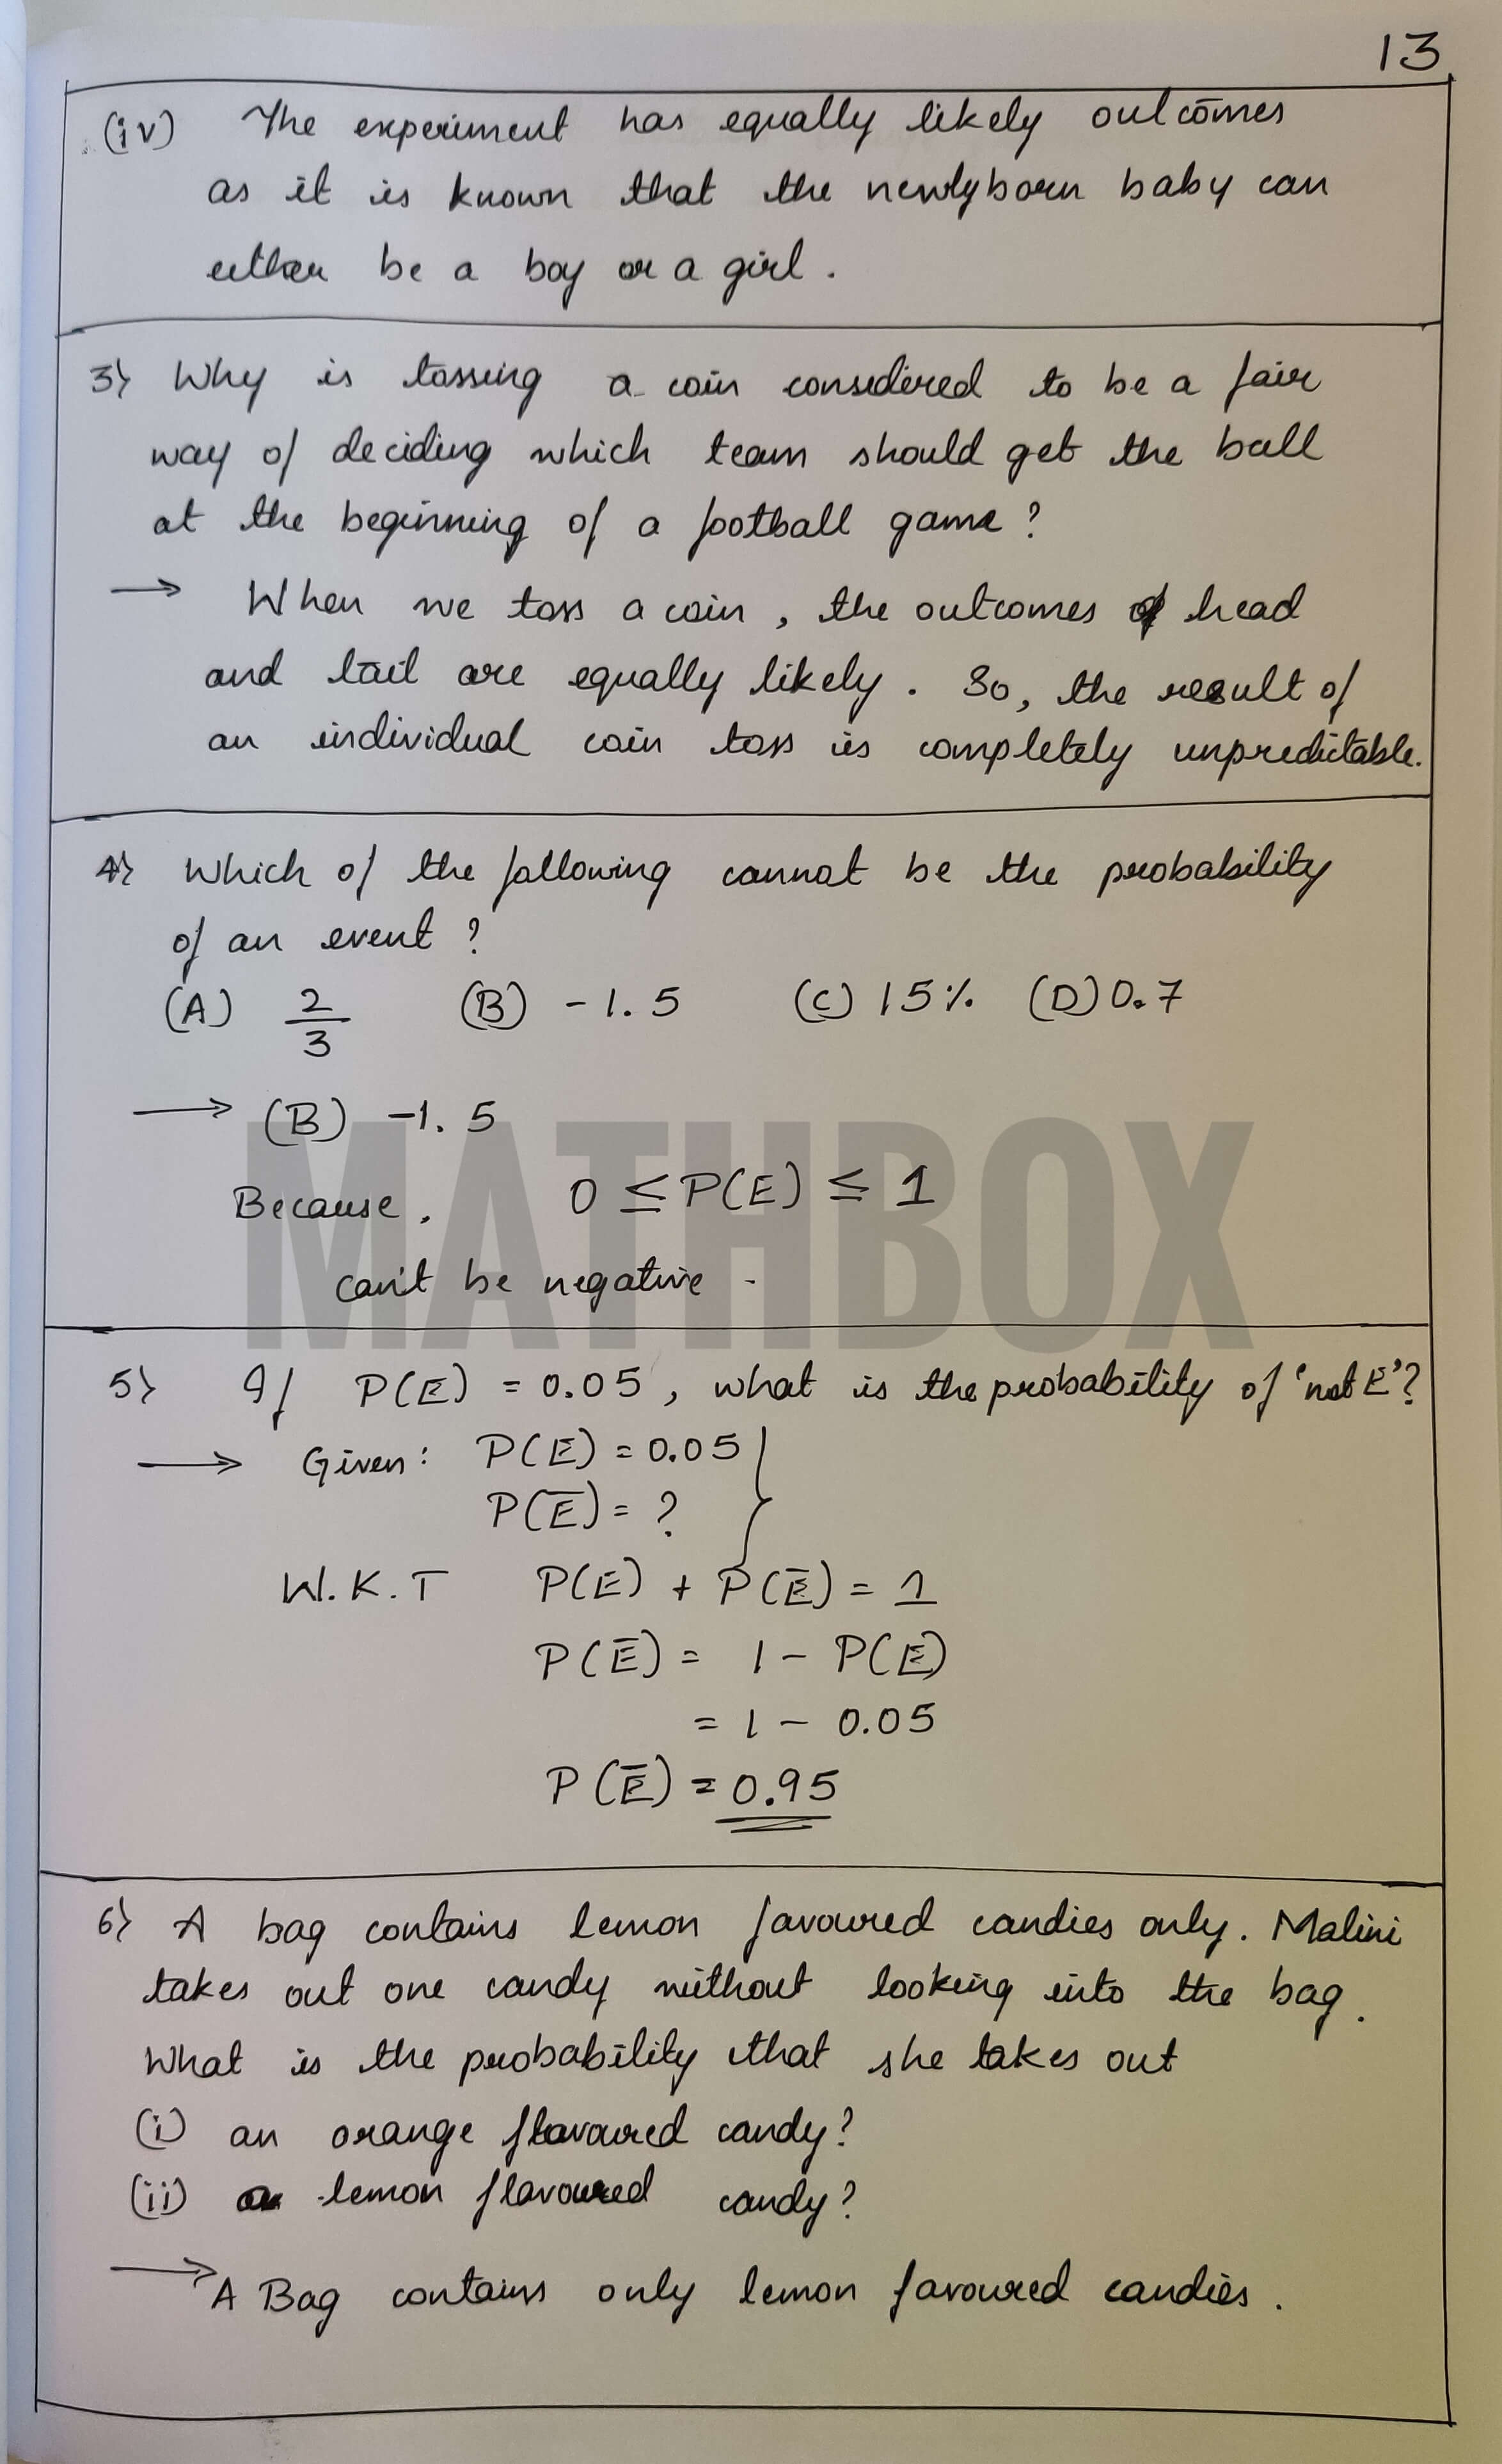 13
(iv) The experiment has equally likely outcomes
as it is known that the newlyborn baby can
either be a boy or a girl.
3) Why is tossing a coin considered to be a fair
way of deciding which team should get the ball
at the beginning of a football game?
→ When we toss a coin, the outcomes of head
and tail are equally likely. So, the result of
an individual coin toss is completely unpredictable.
4) Which of the following cannot be the probability
of an event?
(A) 2/3 (B) -1.5 (C) 15% (D) 0.7
→ (B) -1.5
Because, 0 ≤ P(E) ≤ 1
can't be negative.
MATHBOX
5) If P(E) = 0.05, what is the probability of 'not E'?
→ Given: P(E) = 0.05 }
P(E̅) = ?
W.K.T P(E) + P(E̅) = 1
P(E̅) = 1 - P(E)
= 1 - 0.05
P(E̅) = 0.95
6) A bag contains lemon favoured candies only. Malini
takes out one candy without looking into the bag.
What is the probability that she takes out
(i) an orange flavoured candy?
(ii) a lemon flavoured candy?
→ A Bag contains only lemon favoured candies.